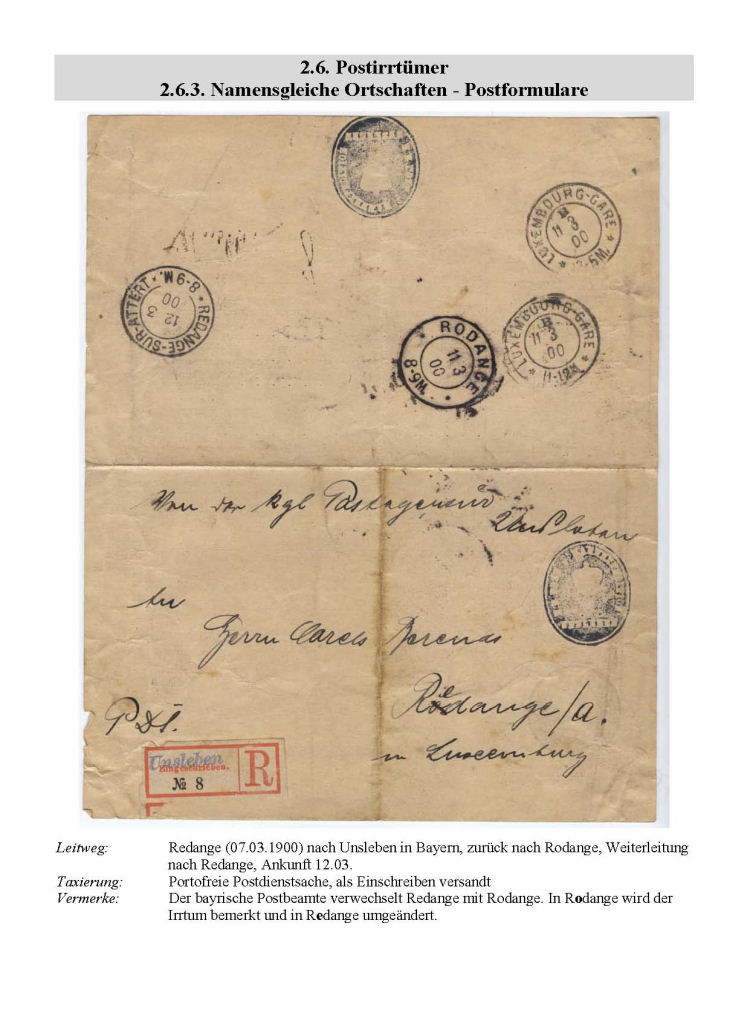 2.6. Postirrtümer
2.6.3. Namensgleiche Ortschaften - Postformulare
LUXEMBOURG-GARE
11 3
00
REDANGE-SUR-ATTERT · W6-8
12 3
00
RODANGE
11 3
00
W6-8
LUXEMBOURG-GARE
11 3
00
11-12M
Von der kgl Postagentur
Unsleben
An
Herrn Carels Berends
Redange/a.
in Luxemburg
P.D.S.
Unsleben
Eingeschrieben.
№ 8
R
Leitweg: Redange (07.03.1900) nach Unsleben in Bayern, zurück nach Rodange, Weiterleitung
nach Redange, Ankunft 12.03.
Taxierung: Portofreie Postdienstsache, als Einschreiben versandt
Vermerke: Der bayrische Postbeamte verwechselt Redange mit Rodange. In Rodange wird der
Irrtum bemerkt und in Redange umgeändert.